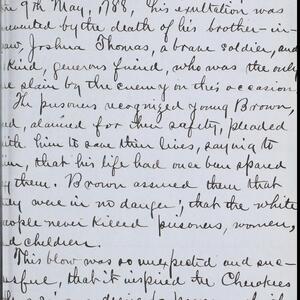 9th May, 1788, his exultation was
by the death of his brother-in-
Joshua Thomas, a brave soldier, and
kind, generous friend, who was the only
slain by the enemy on this occasion.
The prisoners recognized young Brown,
and, alarmed for their safety, pleaded
with him to save their lives, saying to
him, that his life had once been spared
by them. Brown assured them that
they were in no danger; that the white
people never killed prisoners, women,
and children.
This blow was so unexpected and suc-
cessful, that it inspired the Cherokees